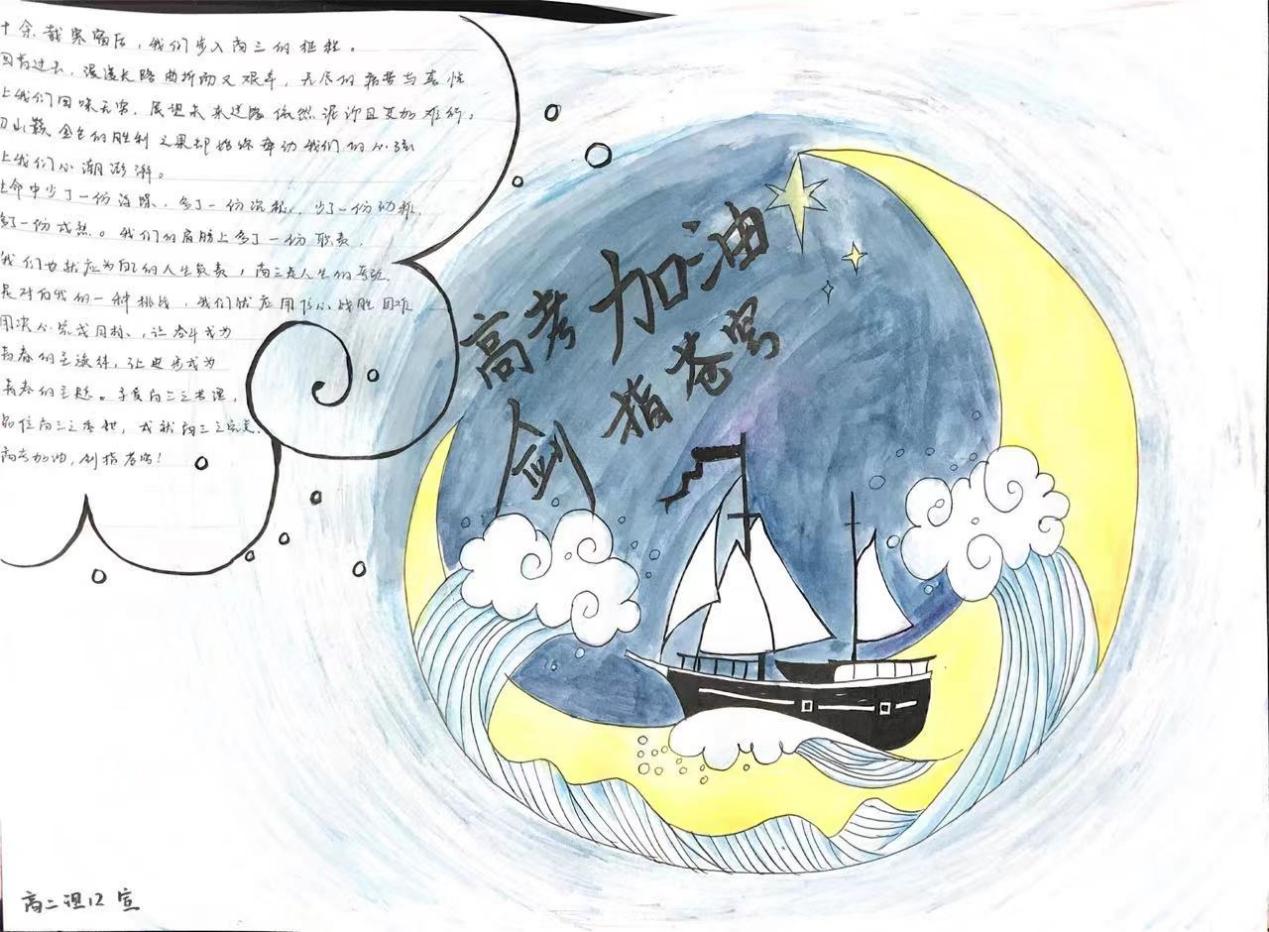 十余载寒窗后，我们步入高三的征程。
回首过去，漫漫长路曲折而又艰辛，无尽的艰苦与
让我们回味无穷，展望未来道路依然泥泞且更加难行，
刀山 金色的胜利之果却始终牵动我们的心弦
让我们心潮澎湃。
生命中少了一份浮躁，多了一份沉稳，少了一份幼稚，
多了一份成熟。我们的肩膀上多了一份职责，
我们也就应为自己的人生负责，高三是人生的考验
是对自我的一种挑战，我们就应用信心战胜困难
用决心完成目标，让奋斗成为
青春的主旋律，让进步成为
青春的主题。 高三之
高三之 成就高三之完美。
高考加油，剑指苍穹！
高考加油
剑指苍穹
高二 12 宣